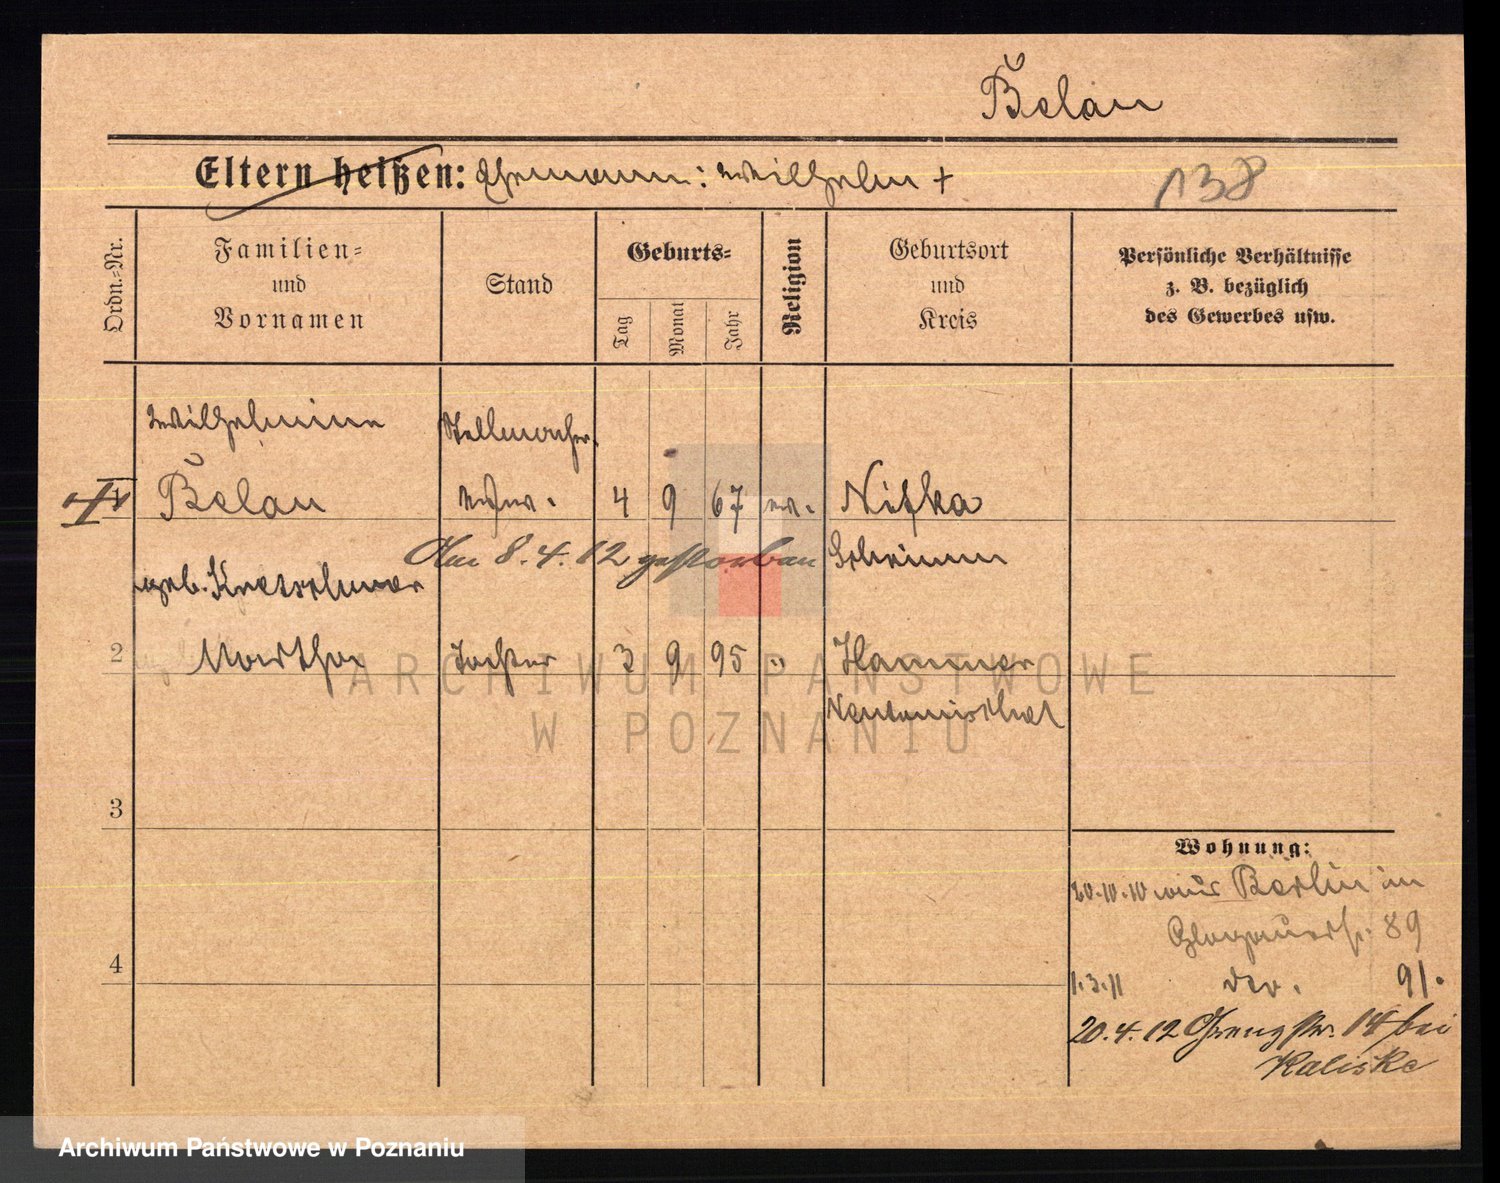 Belau
Eltern heißen: Ehemann: Wilhelm +
138
Ordn.-Nr.
Familien-
und
Vornamen
Stand
Geburts-
Tag
Monat
Jahr
Religion
Geburtsort
und
Kreis
Persönliche Verhältnisse
z. B. bezüglich
des Gewerbes usw.
Wilhelmine Stellmacher
1 Belau wtwe. 4 9 67 ev. Nitka
Am 8.4.12 gestorben Schrimm
geb. Kretschmer
2 Martha Tochter 3 9 95 " Hammer
Neutomischel
3
4
Wohnung:
20.10.10 aus Berlin in
Glogauerstr. 89
1.3.11 91.
20.4.12 14 bei
Kaliske
ARCHIWUM PAŃSTWOWE
W POZNANIU
Archiwum Państwowe w Poznaniu